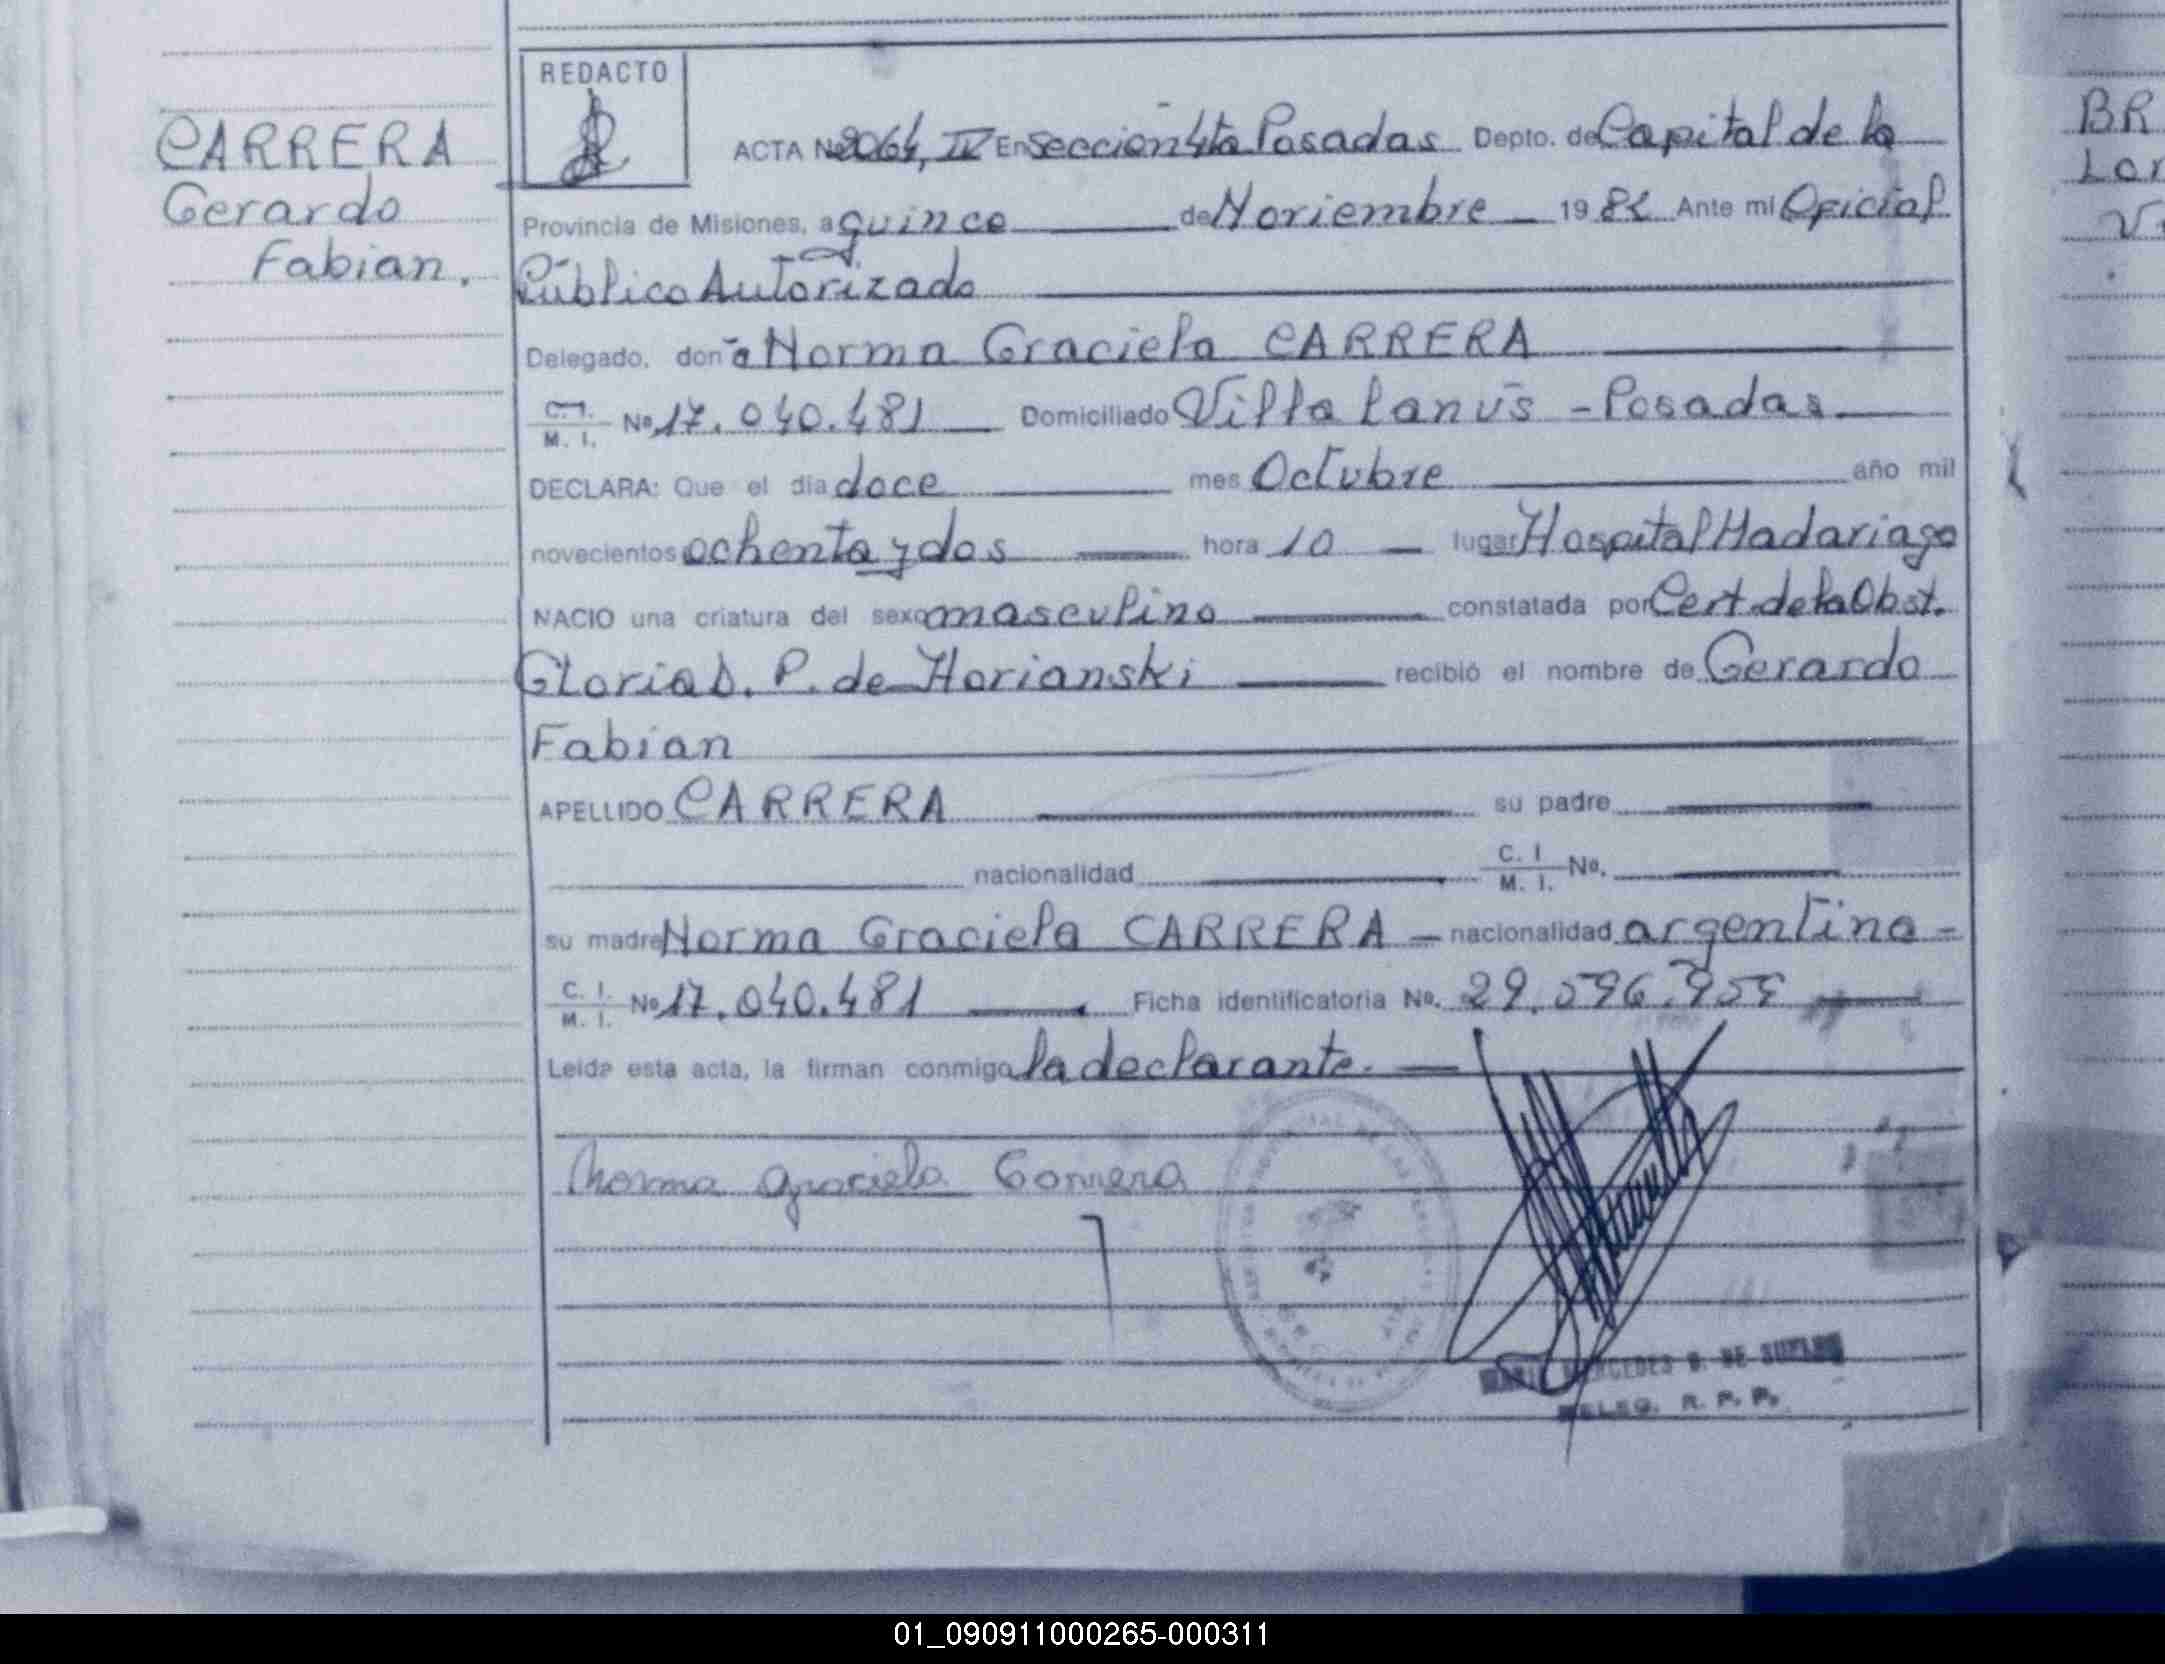 REDACTO
CARRERA
Gerardo
Fabian.
ACTA Nº 2064, IV En Sección 4ta Posadas Depto. de Capital de la
Provincia de Misiones, a quince de Noviembre 1982 Ante mi Oficial
Público Autorizado
Delegado, don a Norma Graciela CARRERA
C. I. M. I. Nº 17.040.481 Domiciliado Villa Lanús - Posadas
DECLARA: Que el día doce mes Octubre año mil
novecientos ochenta y dos hora 10 lugar Hospital Madariaga
NACIO una criatura del sexo masculino constatada por Cert. de la Obst.
Gloria P. de recibió el nombre de Gerardo
Fabian
APELLIDO CARRERA su padre
nacionalidad C. I. M. I. Nº.
su madre Norma Graciela CARRERA nacionalidad argentina
C. I. M. I. Nº 17.040.481 Ficha identificatoria Nº.
Leída esta acta, la firman conmigo la declarante.
Norma Graciela Carrera
MERCEDES
DELEG. R. P. P.
BR
01_090911000265-000311